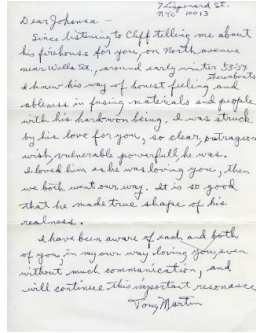 7 Lispenard St.
NYC 10013
Dear Johanna –
Since listening to Cliff telling me about
his firehouse for you, on North avenue
near Wells St., around early winter 58-59
thereabouts
I knew his way of honest feeling and
ableness in fusing materials and people
with his hardwon being. I was struck
by his love for you, so clear, outrageous
wish, vulnerable powerfull, he was.
I loved him as he was loving you, then
we both went our way. It is so good
that he made true shape of his
realness.
I have been aware of each and both
of you, in my own way loving you, even
without much communication, and
will continue this important resonance
Tony Martin